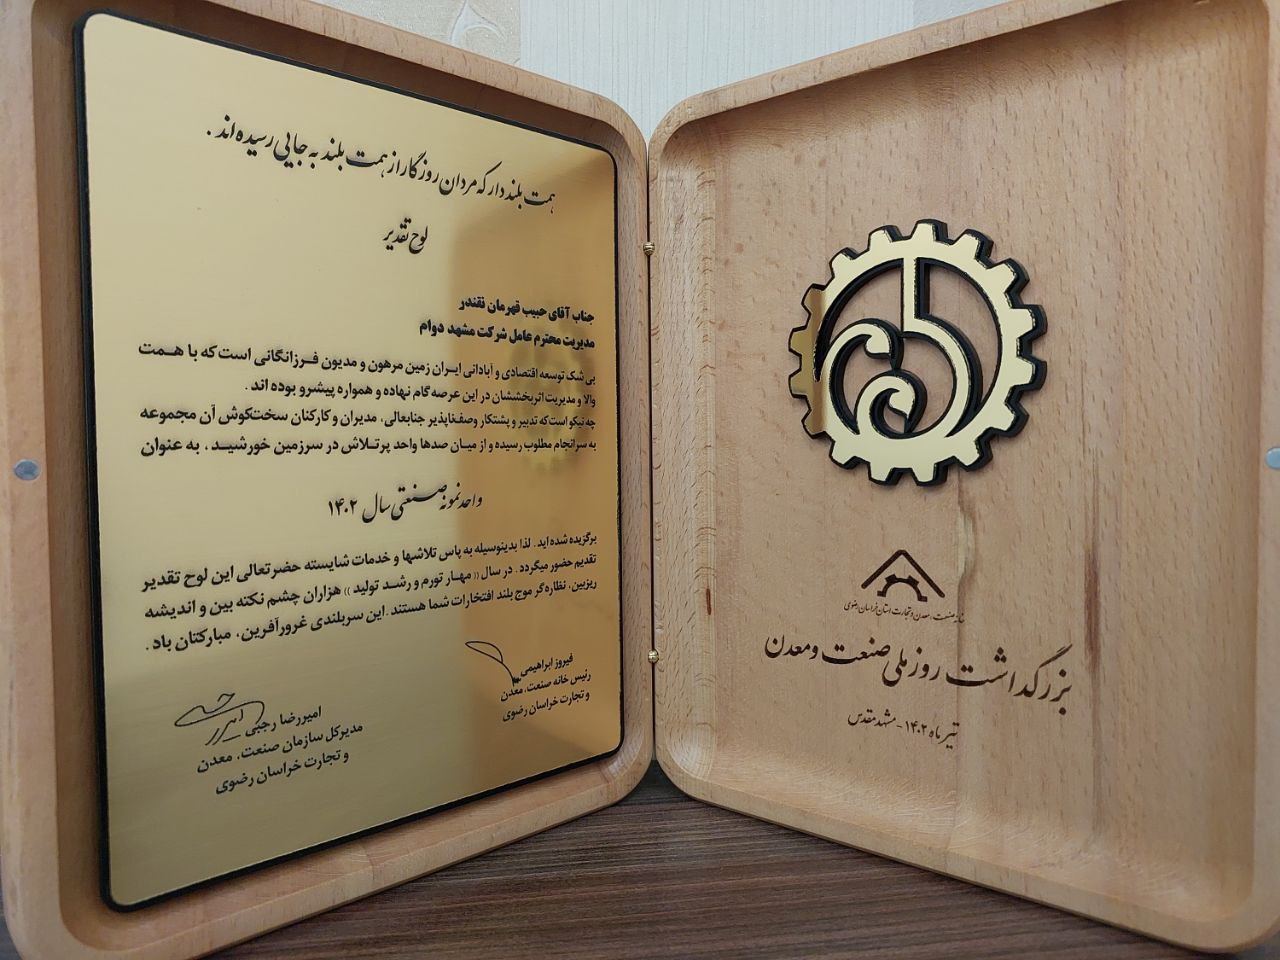 همت بلند دار که مردان روزگار از همت بلند به جایی رسیده اند .
لوح تقدیر
جناب آقای حبیب قهرمان نقندر
مدیریت محترم عامل شرکت مشهد دوام
بی شک توسعه اقتصادی و آبادانی ایران زمین مرهون و مدیون فرزانگانی است که با همت
والا و مدیریت اثربخششان در این عرصه گام نهاده و همواره پیشرو بوده اند .
چه نیکو است که تدبیر و پشتکار وصف‌ناپذیر جنابعالی، مدیران و کارکنان سخت‌کوش آن مجموعه
به سرانجام مطلوب رسیده و از میان صدها واحد پرتلاش در سرزمین خورشید، به عنوان
واحد نمونه صنعتی سال ۱۴۰۲
برگزیده شده اید. لذا بدینوسیله به پاس تلاشها و خدمات شایسته حضرتعالی این لوح تقدیر
تقدیم حضور میگردد. در سال « مهار تورم و رشد تولید » هزاران چشم نکته بین و اندیشه
ریزبین، نظاره‌گر موج بلند افتخارات شما هستند. این سربلندی غرورآفرین، مبارکتان باد.
فیروز ابراهیمی
رئیس خانه صنعت، معدن
و تجارت خراسان رضوی
امیررضا رجبی
مدیرکل سازمان صنعت، معدن
و تجارت خراسان رضوی
خانه صنعت، معدن و تجارت استان خراسان رضوی
بزرگداشت روز ملی صنعت و معدن
تیر ماه ۱۴۰۲ - مشهد مقدس